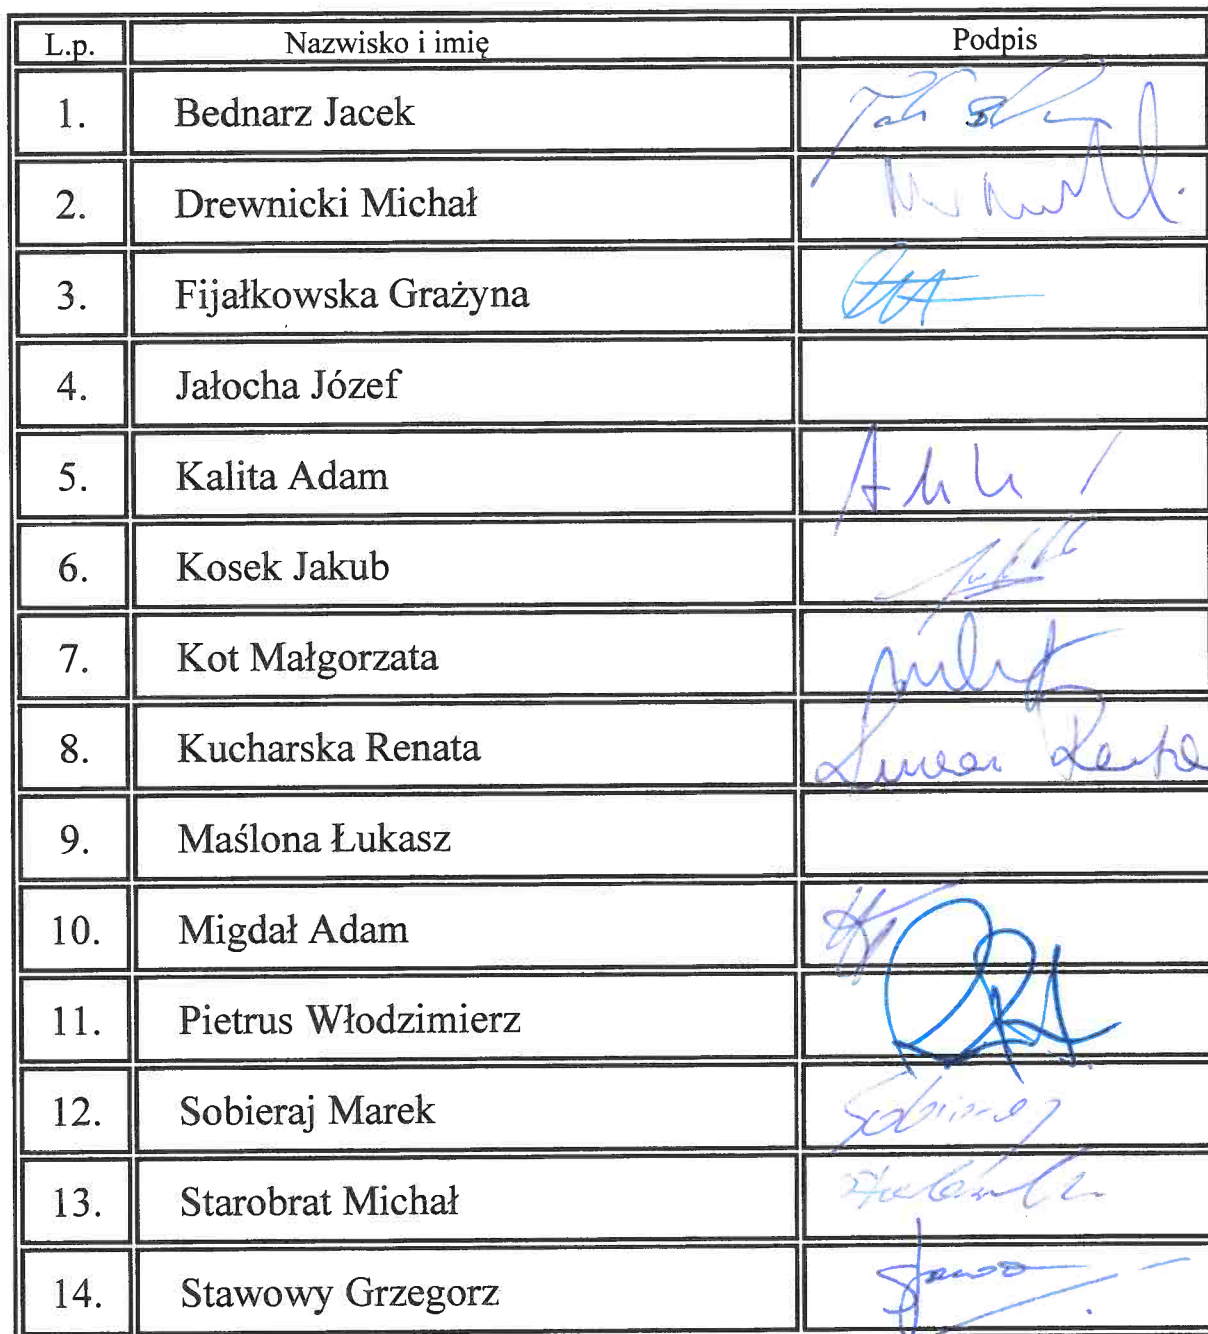 L.p. Nazwisko i imię Podpis
1. Bednarz Jacek
2. Drewnicki Michał
3. Fijałkowska Grażyna
4. Jałocha Józef
5. Kalita Adam
6. Kosek Jakub
7. Kot Małgorzata
8. Kucharska Renata
9. Maślona Łukasz
10. Migdał Adam
11. Pietrus Włodzimierz
12. Sobieraj Marek Sobieraj
13. Starobrat Michał
14. Stawowy Grzegorz